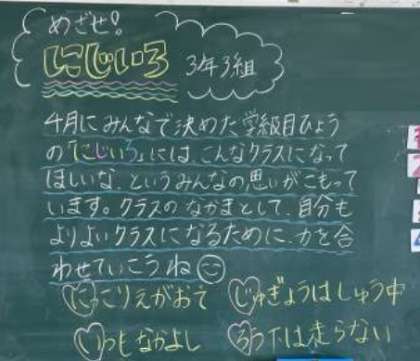 めざせ!
にじいろ 3年3組
4月にみんなで決めた学級目ひょう
の「にじいろ」には、こんなクラスになって
ほしいな、というみんなの思いがこもって
います。クラスのなかまとして、自分も
よりよいクラスになるために、力を合
わせていこうね
にっこりえがおで じゅぎょうはしゅう中
いつもなかよし ろう下は走らない